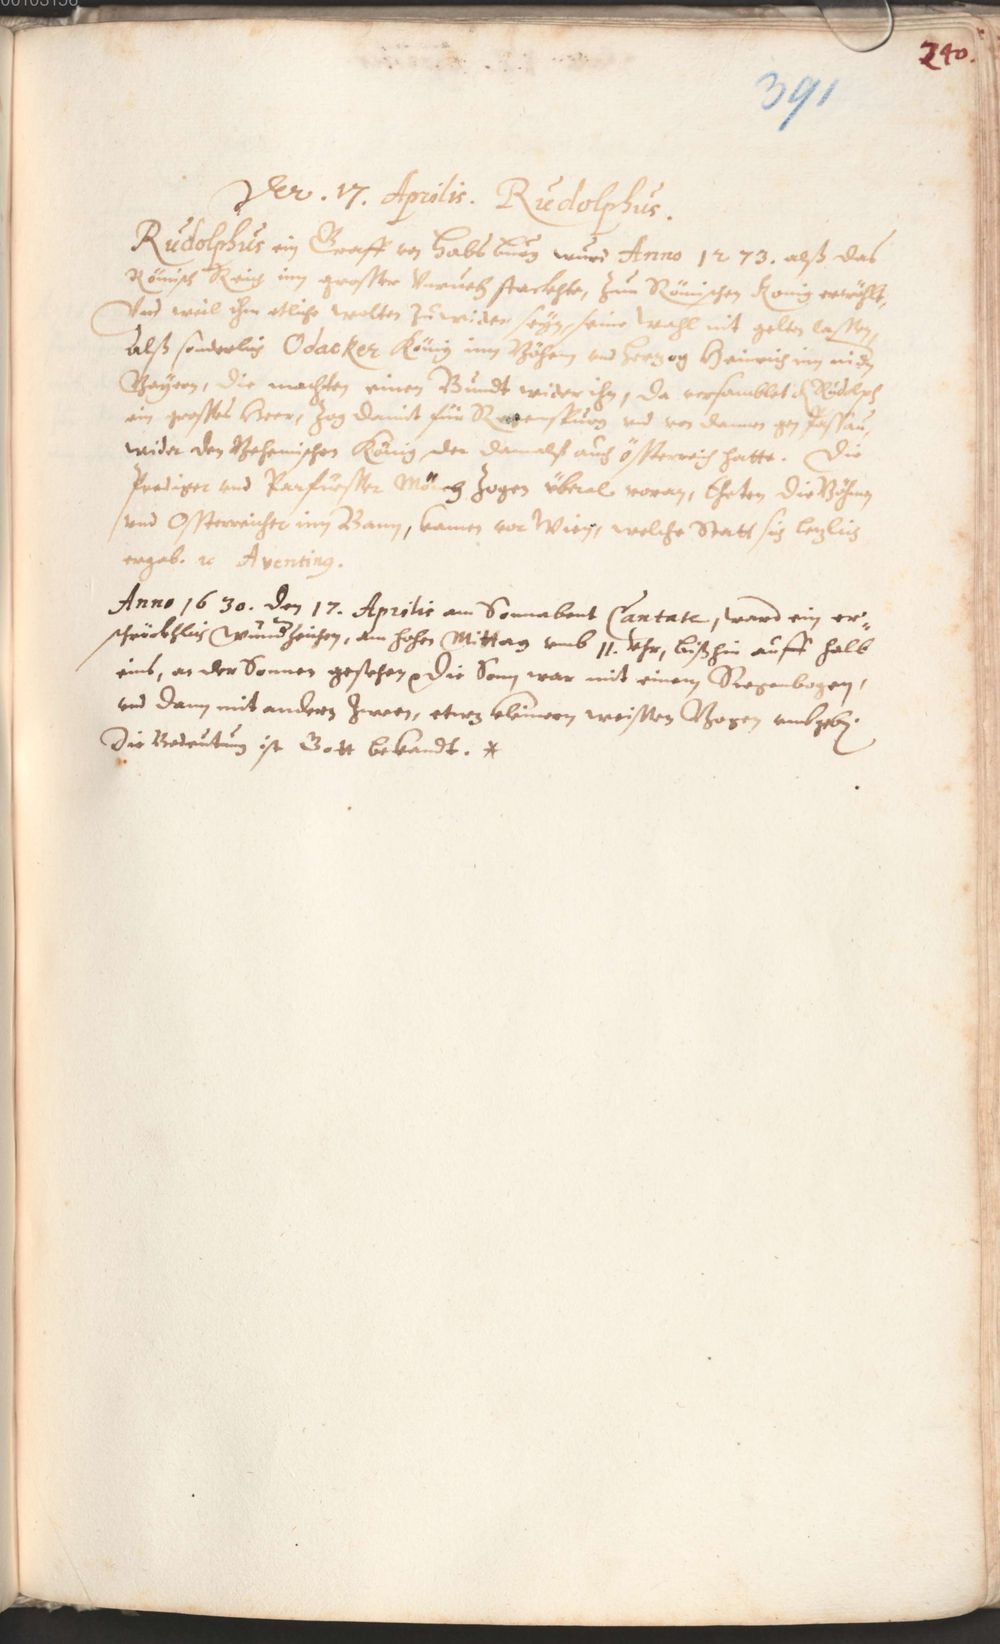 240.
391
Der. 17. Aprilis. Rudolphus.
Rudolphus ein Graff von Habsburg ward Anno 1273. alß das
Römisch Reich inn grosser Unrueh steckhte, zum Römischen König erwöhlt,
Und weil ihm etliche wolten zuwider seyn, seine Wahl nit gelten lassen,
alß sonderlich Odacker König inn Böhem und Herzog Heinrich inn nidern
Bayern, die machten einen Bundt wider ihn, da versamblet K. Rudolph
ein grosses Heer, zog damit für Regenspurg und von dannen gen Passau,
wider den Behemischen König, der damalß auch Össterreich hatte. Die
Prediger und Parfuesser Mönch zogen überal voran, theten die Böhmen
und Össterreicher inn Bann, kamen vor Wien, welche Statt sich letzlich
ergab. ꝛc Aventinus.
Anno 1630. den 17. Aprilis am Sonnabent Cantate, ward ein er-
schröckhlich Wunderzeichen, am hohen Mittag umb 11. Uhr, bißhin auff halb
eins, an der Sonnen gesehen, Die Sonn war mit einem Regenbogen,
und dann mit andern zween, etwas kleinern weissen Bogen umbgeben.
Die Bedeutung ist Gott bekandt. *